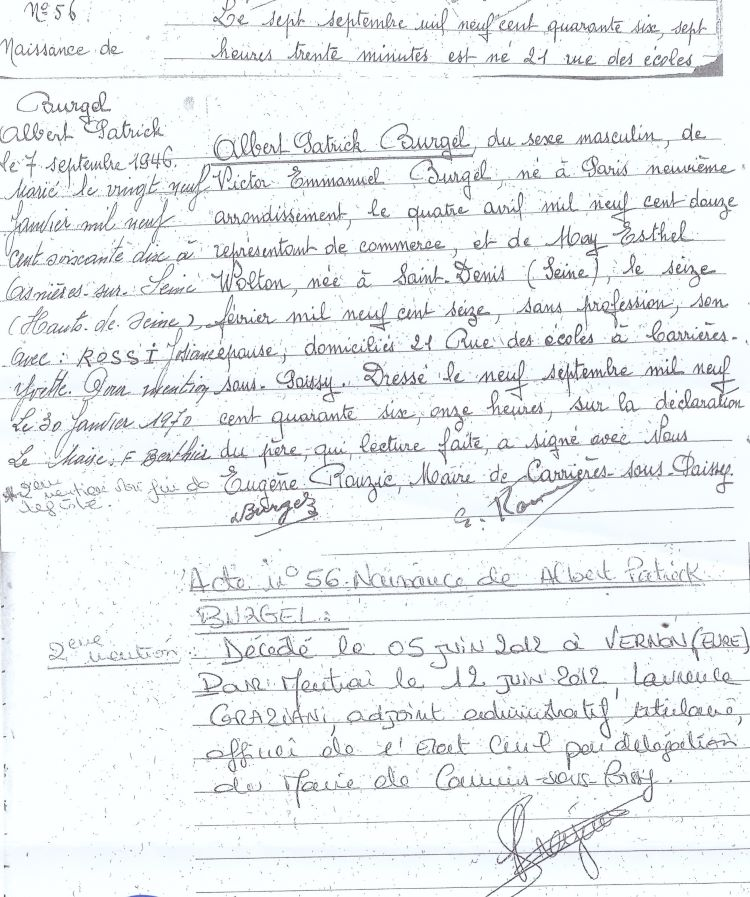 N° 56
Naissance de
Burgel
Albert Patrick
le 7 septembre 1946.
Marié le vingt neuf
Janvier mil neuf
cent soixante dix à
Asnières-sur-Seine
(Hauts-de-Seine)
avec : ROSSI Josiane
Yvette. Pour mention
Le 30 Janvier 1970
Le Maire. F
* 2ème mention fin de
registre.
Le sept septembre mil neuf cent quarante six, sept
heures trente minutes est né 21 rue des écoles
Albert Patrick Burgel, du sexe masculin, de
Victor Emmanuel Burgel, né à Paris neuvième
arrondissement, le quatre avril mil neuf cent douze
représentant de commerce, et de May Esthel
Wolton, née à Saint-Denis (Seine), le seize
février mil neuf cent seize, sans profession, son
épouse, domiciliés 21 Rue des écoles à Carrières-
sous-Poissy. Dressé le neuf septembre mil neuf
cent quarante six, onze heures, sur la déclaration
du père, qui lecture faite, a signé avec Nous
Eugène Rouzic, Maire de Carrières-sous-Poissy.
Burgel
Acte n° 56. Naissance de Albert Patrick
BURGEL :
2ème mention
Décédé le 05 juin 2012 à VERNON (EURE)
Pour Mention le 12 juin 2012, Laurence
GRAZIANI, adjoint administratif titulaire,
officier de l'Etat Civil par délégation
du Maire de Carrières-sous-Poissy.